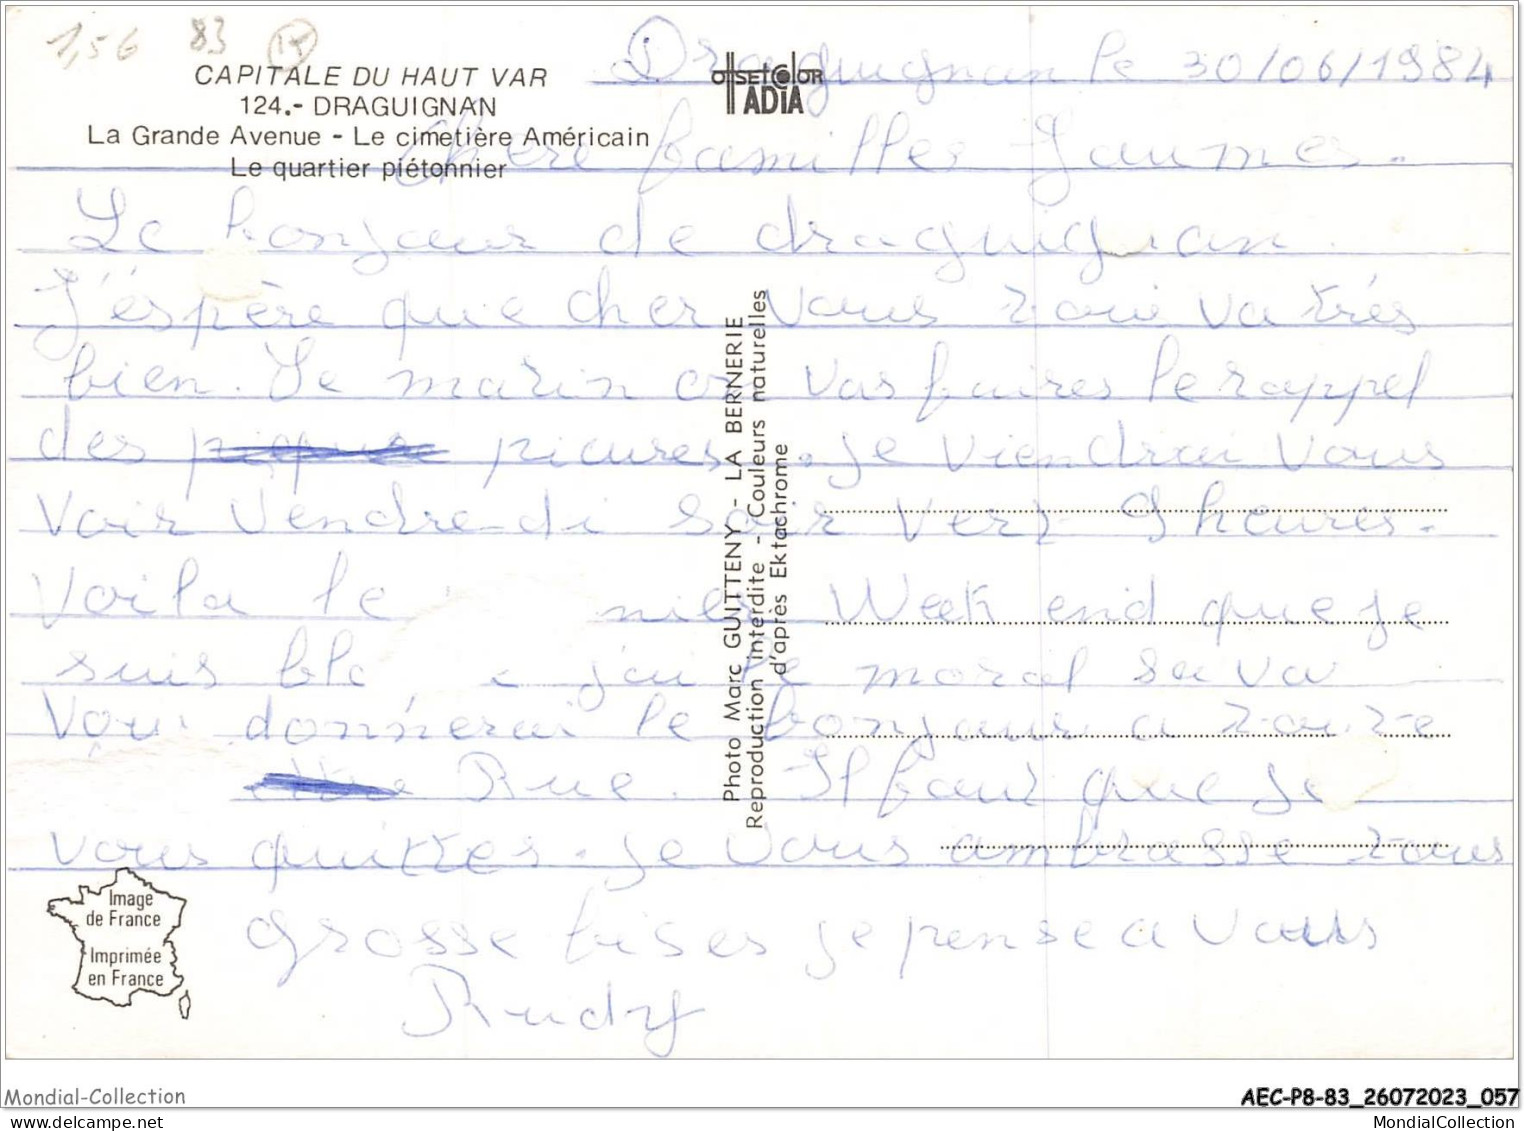 1,56 83
CAPITALE DU HAUT VAR
124.- DRAGUIGNAN
La Grande Avenue - Le cimetière Américain
Le quartier piétonnier
OFFSET COLOR
ADIA
Draguignan le 30/06/1984
Chere familles Jaumes.
Le bonjour de draguignan.
J'éspère que cher vous tout va trés
bien. Le marin on vas faires le rappel
des picures. je viendrai vous
voir vendredi soir vers 9 heures.
Voila le Week end que je
suis j'ai le moral sa va
Vous donnerai le bonjour a toute
Rue. Il faut que je
vous quittes. je vous ambrasse tous
grosse bises je pense a vous
Rudy
Photo Marc GUITTENY - LA BERNERIE
Reproduction interdite - Couleurs naturelles
d'après Ektachrome
Image
de France
Imprimée
en France
Mondial-Collection
AEC-P8-83_26072023_057
MondialCollection